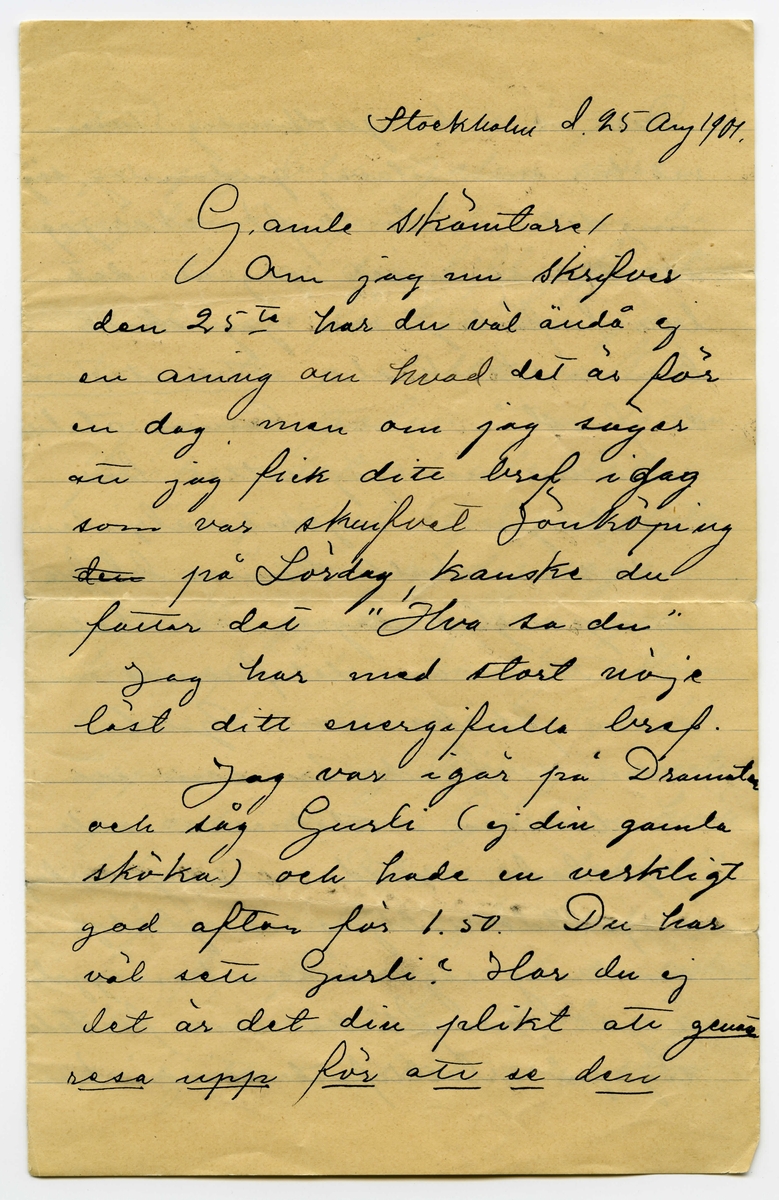 Stockholm d. 25 Aug 1901.
Gamle skämtare!
Om jag nu skrifver
den 25te har du väl ändå ej
en aning om hvad det är för
en dag, men om jag säger
att jag fick ditt bref idag
som var skrifvet Jönköping
den på Lördag, kanske du
fattar det "Hva sa du"
Jag har med stort nöje
läst ditt energifulla bref.
Jag var igår på Dramaten
och såg Gurli (ej din gamla
sköka) och hade en verkligt
god afton för 1.50. Du har
väl sett Gurli? Har du ej
det är det din plikt att genast
resa upp för att se den